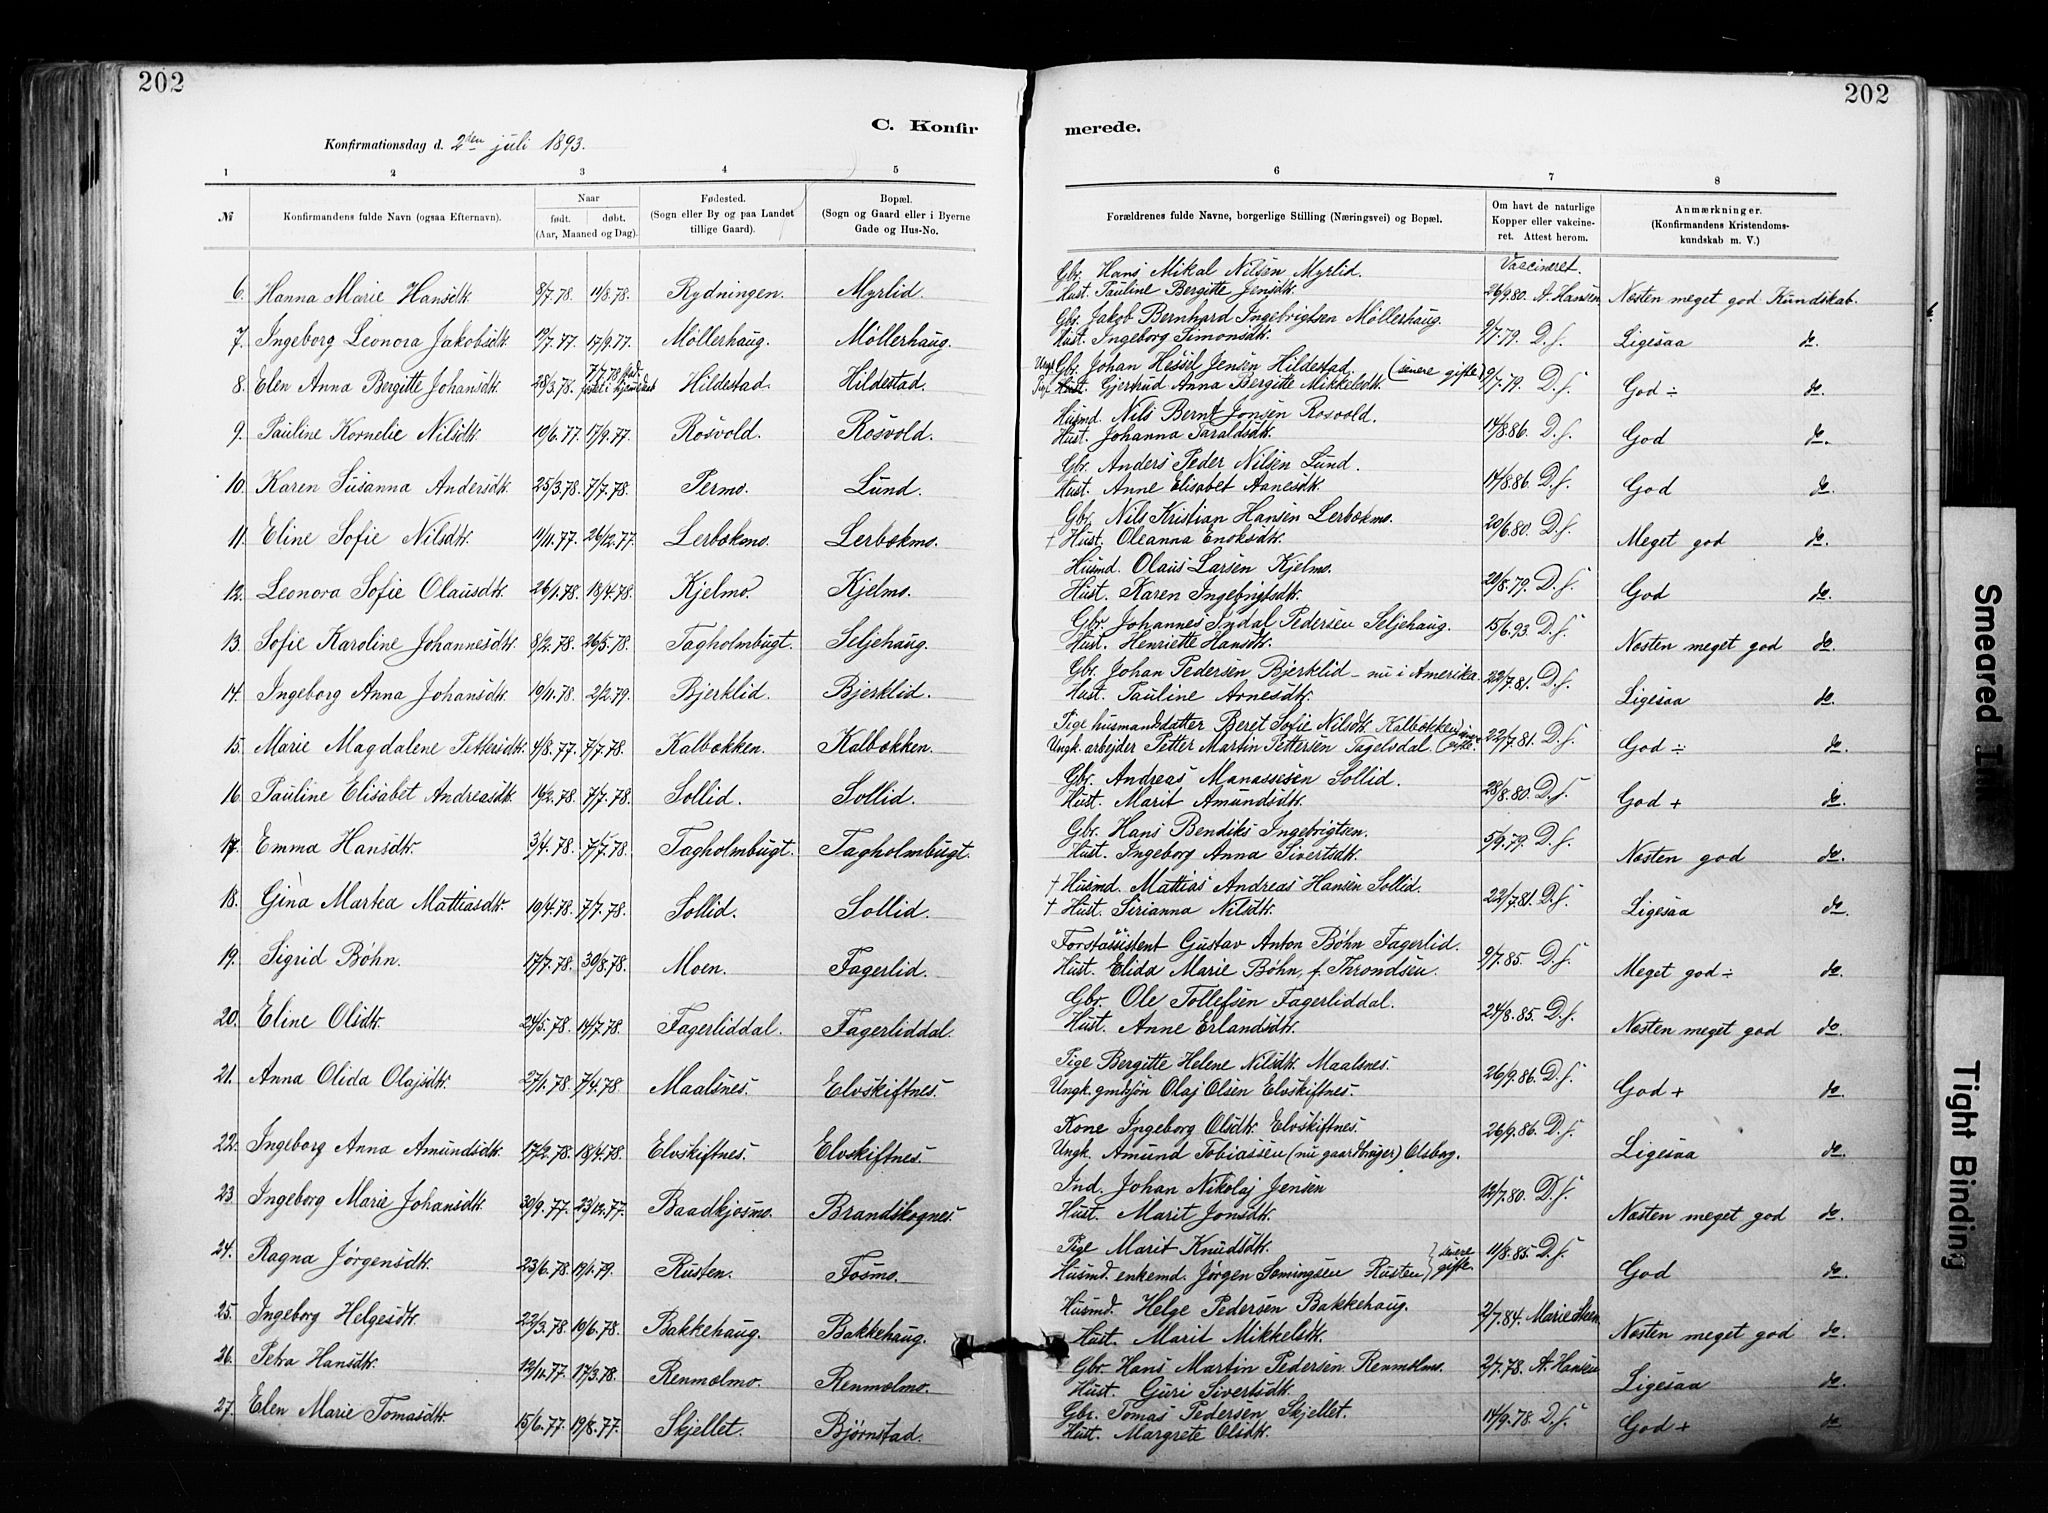 202
202
C. Konfirmerede.
Konfirmationsdag d. 2den juli 1893.
1 2 3 4 5 6 7 8
№ Konfirmandens fulde Navn (ogsaa Efternavn). Naar født. døbt. (Aar, Maaned og Dag). Fødested. (Sogn eller By og paa Landet tillige Gaard). Bopæl. (Sogn og Gaard eller i Byerne Gade og Hus-No. Forældrenes fulde Navne, borgerlige Stilling (Næringsvei) og Bopæl. Om havt de naturlige Kopper eller vakcineret. Attest herom. Anmærkninger. (Konfirmandens Kristendomskundskab m. V.)
Gbr. Hans Mikal Nilsen Myrlid. Vaccineret.
6. Hanna Marie Hansdtr. 8/7.78. 11/8.78. Rydningen. Myrlid. Hust. Pauline Bergitte Jensdtr. 26/9.80. A. Hansen Næsten meget god Kundskab.
Gbr. Jakob Bernhard Ingebrigtsen Möllerhaug.
7. Ingeborg Leonora Jakobsdtr. 19/7.77. 17/9.77. Möllerhaug. Möllerhaug. Hust. Ingeborg Simonsdtr. 9/7.79. D.s. Ligesaa do.
Ungk. Gbr. Johan Hessel Jensen Hildestad. (senere gifte)
8. Elen Anna Bergitte Johansdtr. 28/3.78. 7/7.78 Hildestad. Hildestad. Pige Hust. Gjertrud Anna Bergitte Mikkelsdtr. 9/7.79. D.s. God ÷ do.
Husmd. Nils Bernt Jonsen Rosvold.
9. Pauline Kornelie Nilsdtr. 19/6.77. 17/9.77. Rosvold. Rosvold. Hust. Johanna Taraldsdtr. 14/8.86. D.s. God do.
Gbr. Anders Peder Nilsen Lund.
10. Karen Susanna Andersdtr. 25/3.78. 7/7.78. Permo. Lund. Hust. Anne Elisabet Aanesdtr. 14/8.86 D.s. God do.
Gbr. Nils Kristian Hansen Lerbækmo.
11. Eline Sofie Nilsdtr. 11/11.77. 26/12.77. Lerbækmo. Lerbækmo. † Hust. Oleanna Enoksdtr. 20/6.80. D.s. Meget god do.
Husmd. Olaus Larsen Kjelmo.
12. Leonora Sofie Olausdtr. 26/1.78. 18/4.78. Kjelmo. Kjelmo. Hust. Karen Ingebrigtsdtr. 20/8.79. D.s. God do.
Gbr. Johannes Indal Pedersen Seljehaug.
13. Sofie Karoline Johannesdtr. 8/2.78. 26/5.78. Tagholmbugt. Seljehaug. Hust. Henriette Hansdtr. 15/6.93. D.s. Næsten meget god do.
Gbr. Johan Pedersen Bjerklid – nu i Amerika.
14. Ingeborg Anna Johansdtr. 19/11.78. 2/2.79. Bjerklid. Bjerklid. Hust. Pauline Arnesdtr. 22/7.81. D.s. Ligesaa do.
Pige husmandsdatter Beret Sofie Nilsdtr. Kalbækken
15. Marie Magdalene Pettersdtr. 4/8.77. 7/7.78. Kalbækken. Kalbækken. Ungk. arbejder Petter Martin Pettersen Fagelsdal. gifte. 22/7.81. D.s. God ÷ do.
Gbr. Andreas Manassesen Sollid.
16. Pauline Elisabet Andreasdtr. 14/2.78. 7/7.78. Sollid. Sollid. Hust. Marit Amundsdtr. 28/8.80. D.s. God + do.
Gbr. Hans Bendiks Ingebrigtsen.
17. Emma Hansdtr. 3/4.78. 7/7.78. Tagholmbugt. Tagholmbugt. Hust. Ingeborg Anna Sivertsdtr. 5/9.79. D.s. Næsten god do.
† Husmd. Mattias Andreas Hansen Sollid.
18. Gina Martea Mattiasdtr. 19/4.78. 7/7.78. Sollid. Sollid. † Hust. Sirianna Nilsdtr. 22/7.81. D.s. Ligesaa do.
Forstassistent Gustav Anton Bøhn Fagerlid.
19. Sigrid Bøhn. 17/7.78. 30/8.78. Moen. Fagerlid. Hust. Elida Marie Bøhn, f. Throndsen. 9/7.85. D.s. Meget god ÷ do.
Gbr. Ole Tollefsen Fagerliddal.
20. Eline Olsdtr. 24/5.78. 14/7.78. Fagerliddal. Fagerliddal. Hust. Anne Erlandsdtr. 24/8.85. D.s. Næsten meget god do.
Pige Bergitte Helene Nilsdtr. Maalsnes.
21. Anna Olida Olajsdtr. 27/1.78. 7/4.78 Maalsnes. Elvskiftnes. Ungk. gmdsjøn Olaj Olsen Elvskiftnes. 26/9.86. D.s. God + do.
Kone Ingeborg Olsdtr. Elvskiftnes.
22. Ingeborg Anna Amundsdtr. 17/2.78. 18/4.78. Elvskiftnes. Elvskiftnes. Ungk. Amund Tobiassen (nu gaardbruger) Olsborg. 26/9.86. D.s. Ligesaa do.
Ind. Johan Nikolaj Jensen
23 Ingeborg Marie Johansdtr. 30/9.77. 23/12.77. Baadkjosmo. Brandskognes. Hust. Marit Jonsdtr. 12/7.80. D.s. Næsten meget god do.
Pige Marit Knudsdtr. senere gifte.
24. Ragna Jørgensdtr. 23/6.78. 19/1.79. Rusten. Fosmo. Husmd. enkemd. Jørgen Somingsen Rusten 11/8.85. D.s. God do.
Husmd. Helge Pedersen Bakkehaug.
25. Ingeborg Helgesdtr. 22/3.78. 10/6.78. Bakkehaug. Bakkehaug. Hust. Marit Mikkelsdtr. 2/7.84. Marie Steen Næsten meget god do.
Gbr. Hans Martin Pedersen Renmælmo.
26. Petra Hansdtr. 12/11.77. 17/3.78. Renmælmo. Renmælmo. Hust. Guri Sivertsdtr. 2/7.78. A. Hansen Ligesaa do.
Gbr. Tomas Pedersen Skjellet.
27. Elen Marie Tomasdtr. 15/6.77. 19/8.77. Skjellet. Bjørnstad. Hust. Margrete Olsdtr. 14/9.78. D.s. God + do.
Smeared Ink
Tight Binding